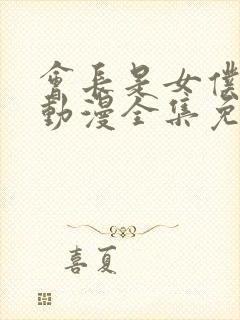 會長是女僕
動漫全集免
喜夏